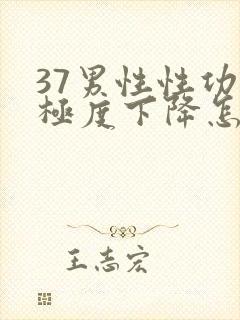 37男性性功
極度下降怎
王志宏